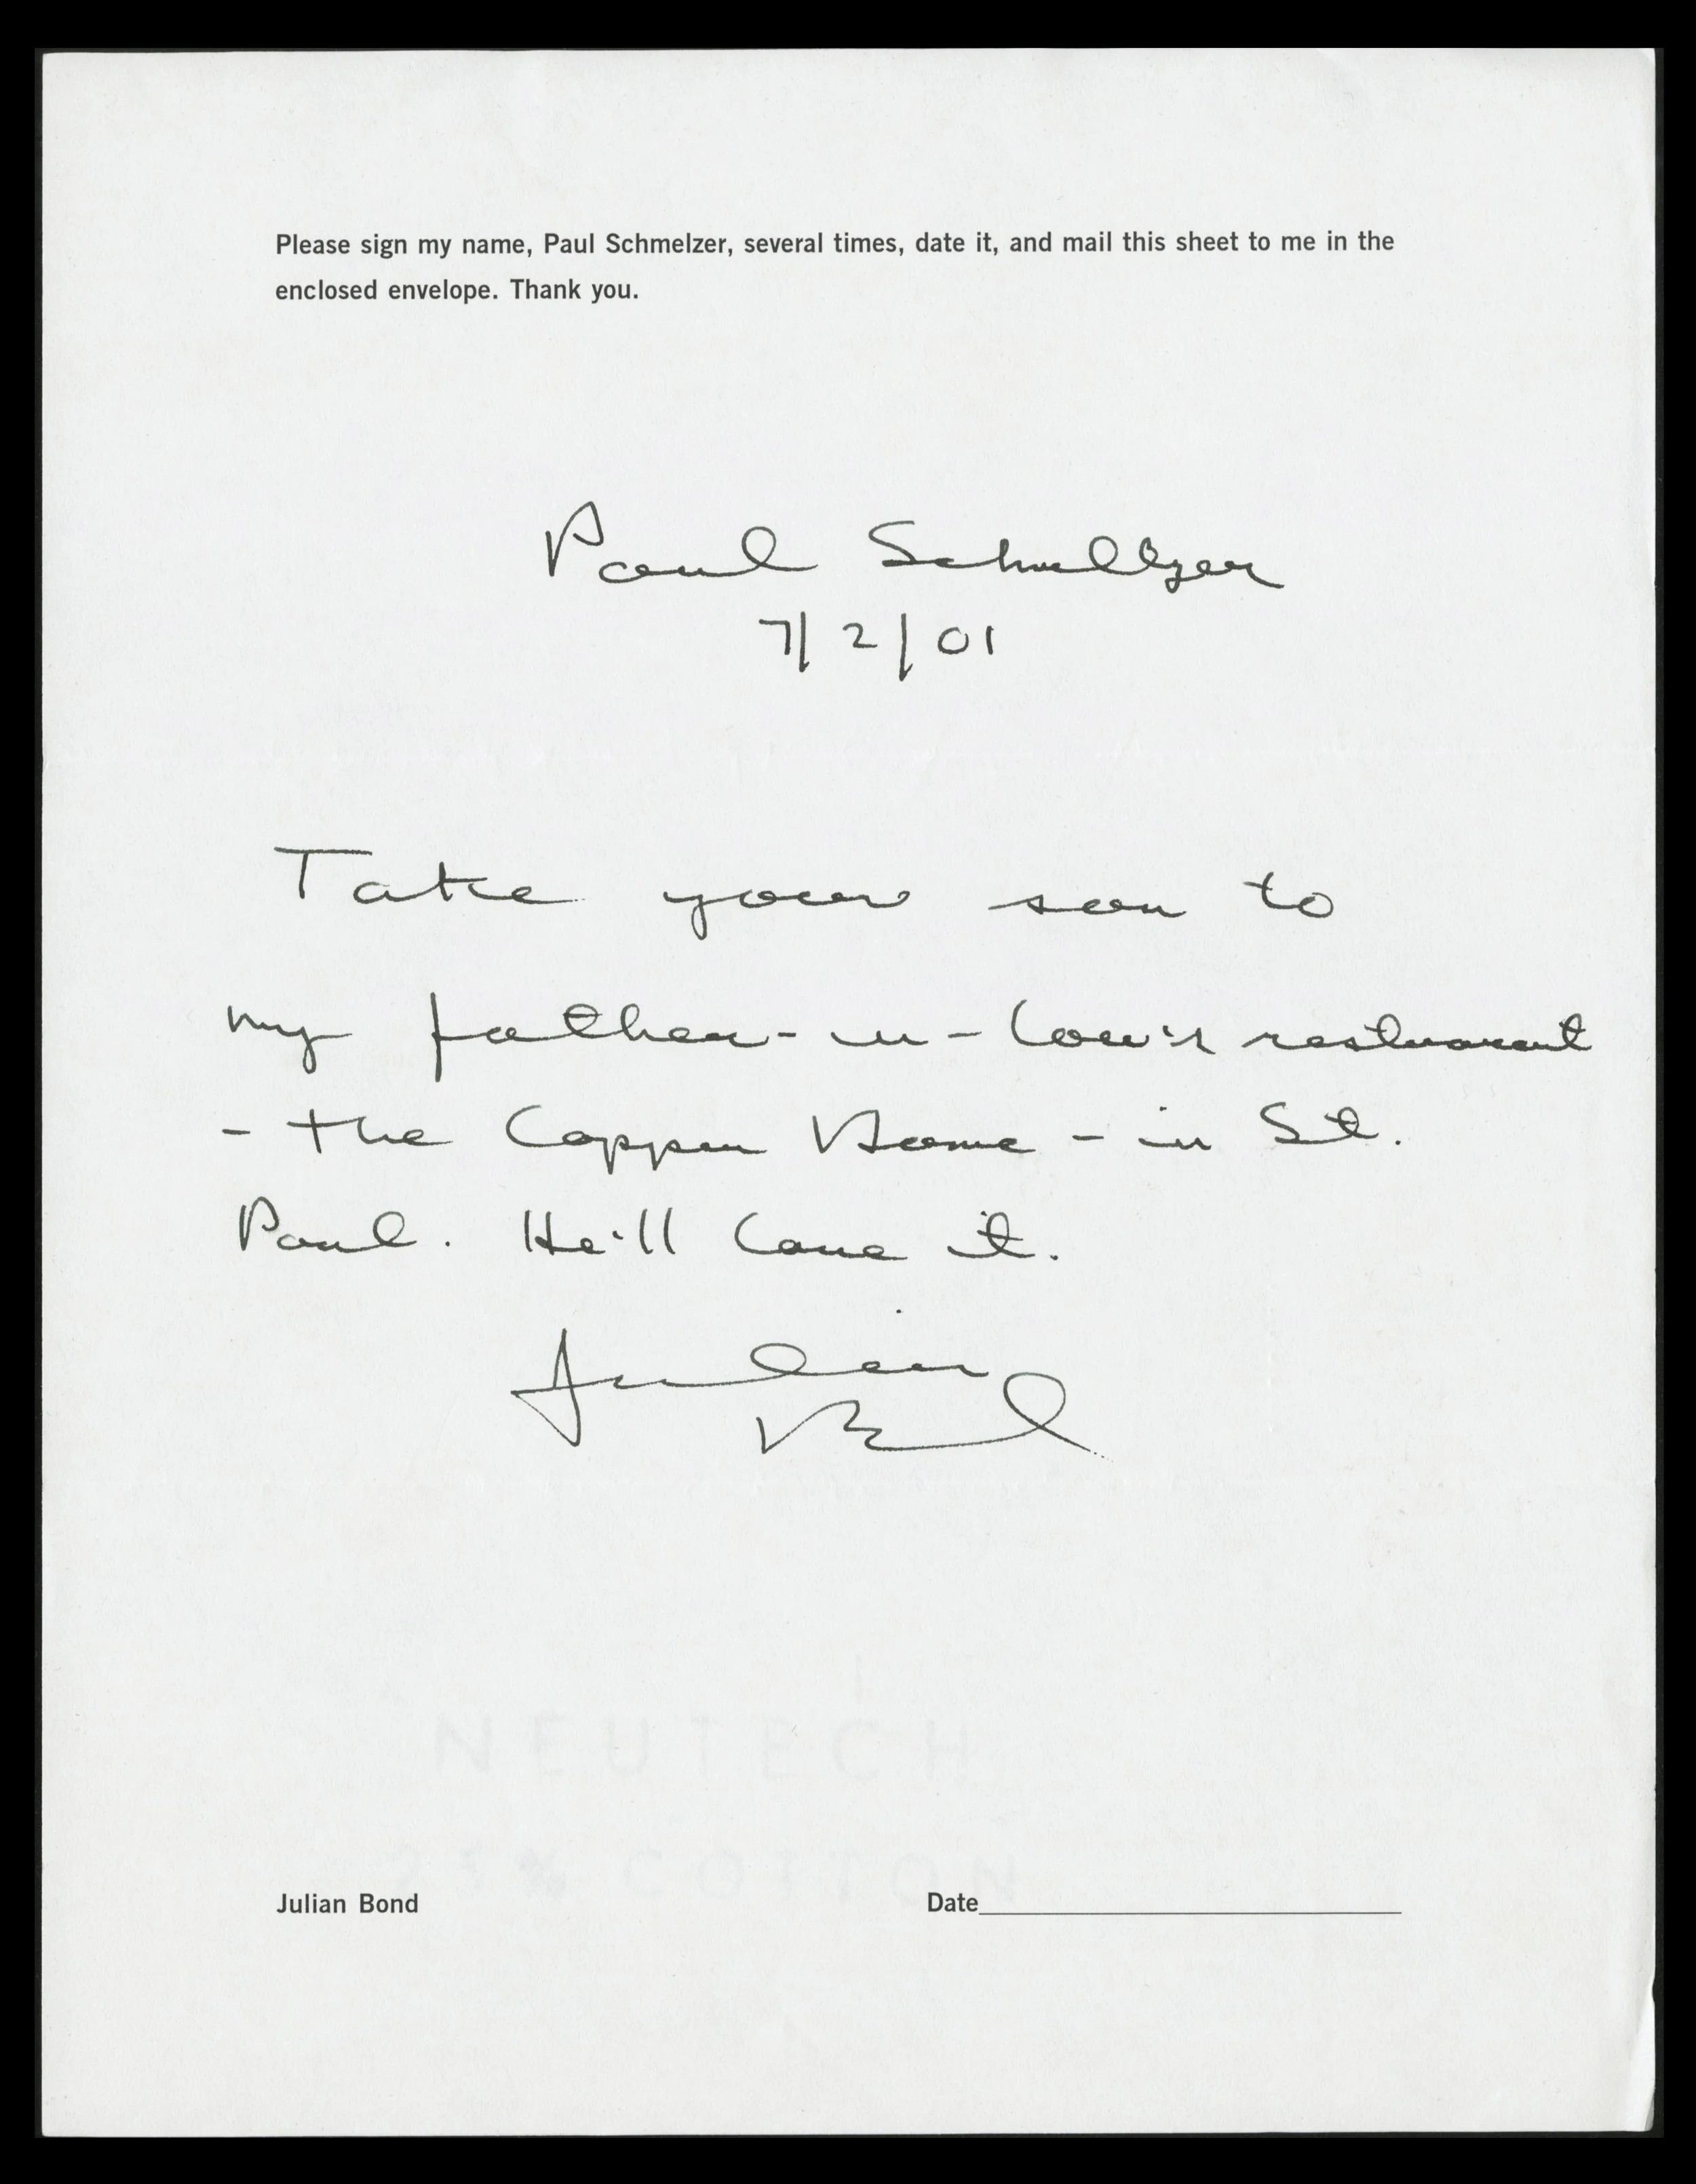 Please sign my name, Paul Schmelzer, several times, date it, and mail this sheet to me in the
enclosed envelope. Thank you.
Paul Schmeltzer
7/2/01
Take your son to
my father-in-law's restuarant
- the Copper Dome - in St.
Paul. He'll love it.
Julian
Bond
NEUTECH
25% COTTON
Julian Bond Date